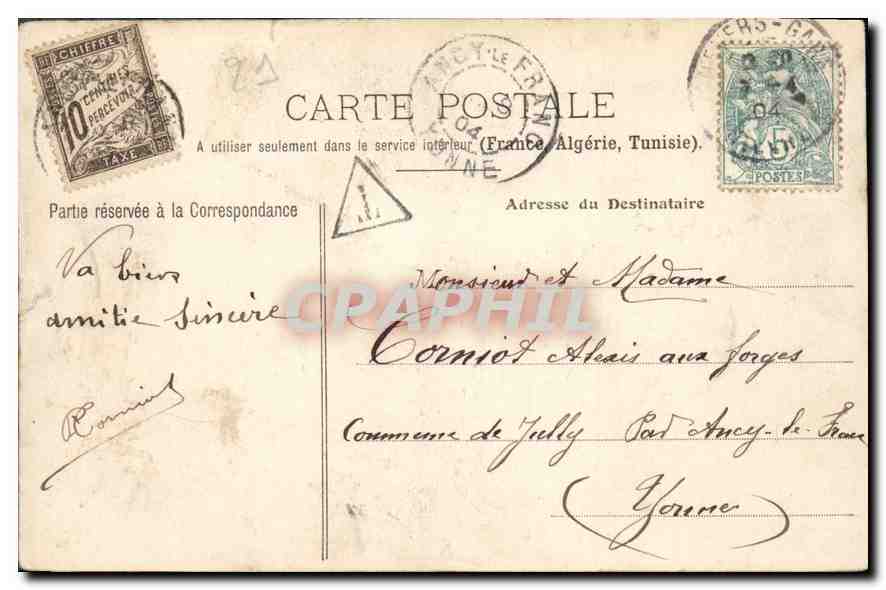 CHIFFRE
10 CENTIMES
A PERCEVOIR
TAXE
ANCY-LE-FRANC
04
YONNE
NEVERS-GARE
04
5
POSTES
CARTE POSTALE
A utiliser seulement dans le service intérieur (France, Algérie, Tunisie).
T
Partie réservée à la Correspondance
Adresse du Destinataire
Va bien
amitie Sincère
Corniot
Monsieur et Madame
Corniot Alexis aux forges
Commune de Jully Par Ancy-le-Franc
(Yonne)
CPAPHIL